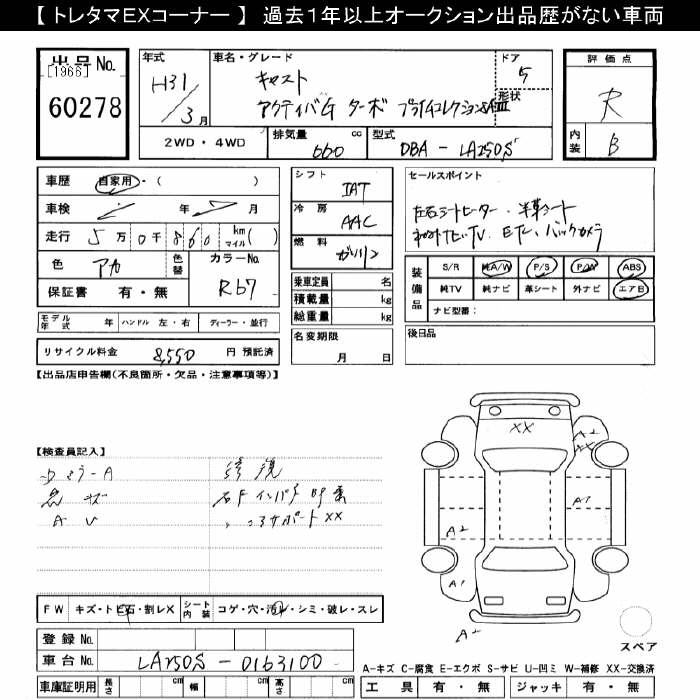 【 トレタマEXコーナー 】 過去１年以上オークション出品歴がない車両
出品 No.
[1966]
60278
年式
H31/3月
車名・グレード
キャスト
アクティバG ターボ プライムコレクションSAⅢ
ドア
5
形状
2WD・4WD
排気量 660 cc
型式 DBA-LA250S
評価点
R
内装
B
車歴 自家用・( )
車検 年 月
走行 5万0千860 km マイル( )
色 アカ
色替
カラーNo.
R67
保証書 有・無
モデル年式 年 ハンドル 左・右 ディーラー・並行
リサイクル料金 8,550 円 預託済
シフト IAT
冷房 AAC
燃料 ガソリン
乗車定員 名
積載量 kg
総重量 kg
名変期限
月 日
セールスポイント
左右シートヒーター・半革シート
ETC、バックカメラ
装備品
S/R 純A/W P/S P/W ABS
純TV 純ナビ 革シート 外ナビ エアB
ナビ型番：
後日品
【出品店申告欄(不良箇所・欠品・注意事項等)】
【検査員記入】
修復
AU
右Fインパネ
コアサポートXX
FW キズ・トビ石・割レX
シート内装 コゲ・穴・汚レ・シミ・破レ・スレ
登録 No.
車台 No. LA250S-0163100
車庫証明用 長さ cm 幅 cm 高さ cm
XX
A2
A1
A2
A1
A2
スペア
A-キズ C-腐食 E-エクボ S-サビ U-凹ミ W-補修 XX-交換済
工具 有・無 ジャッキ 有・無